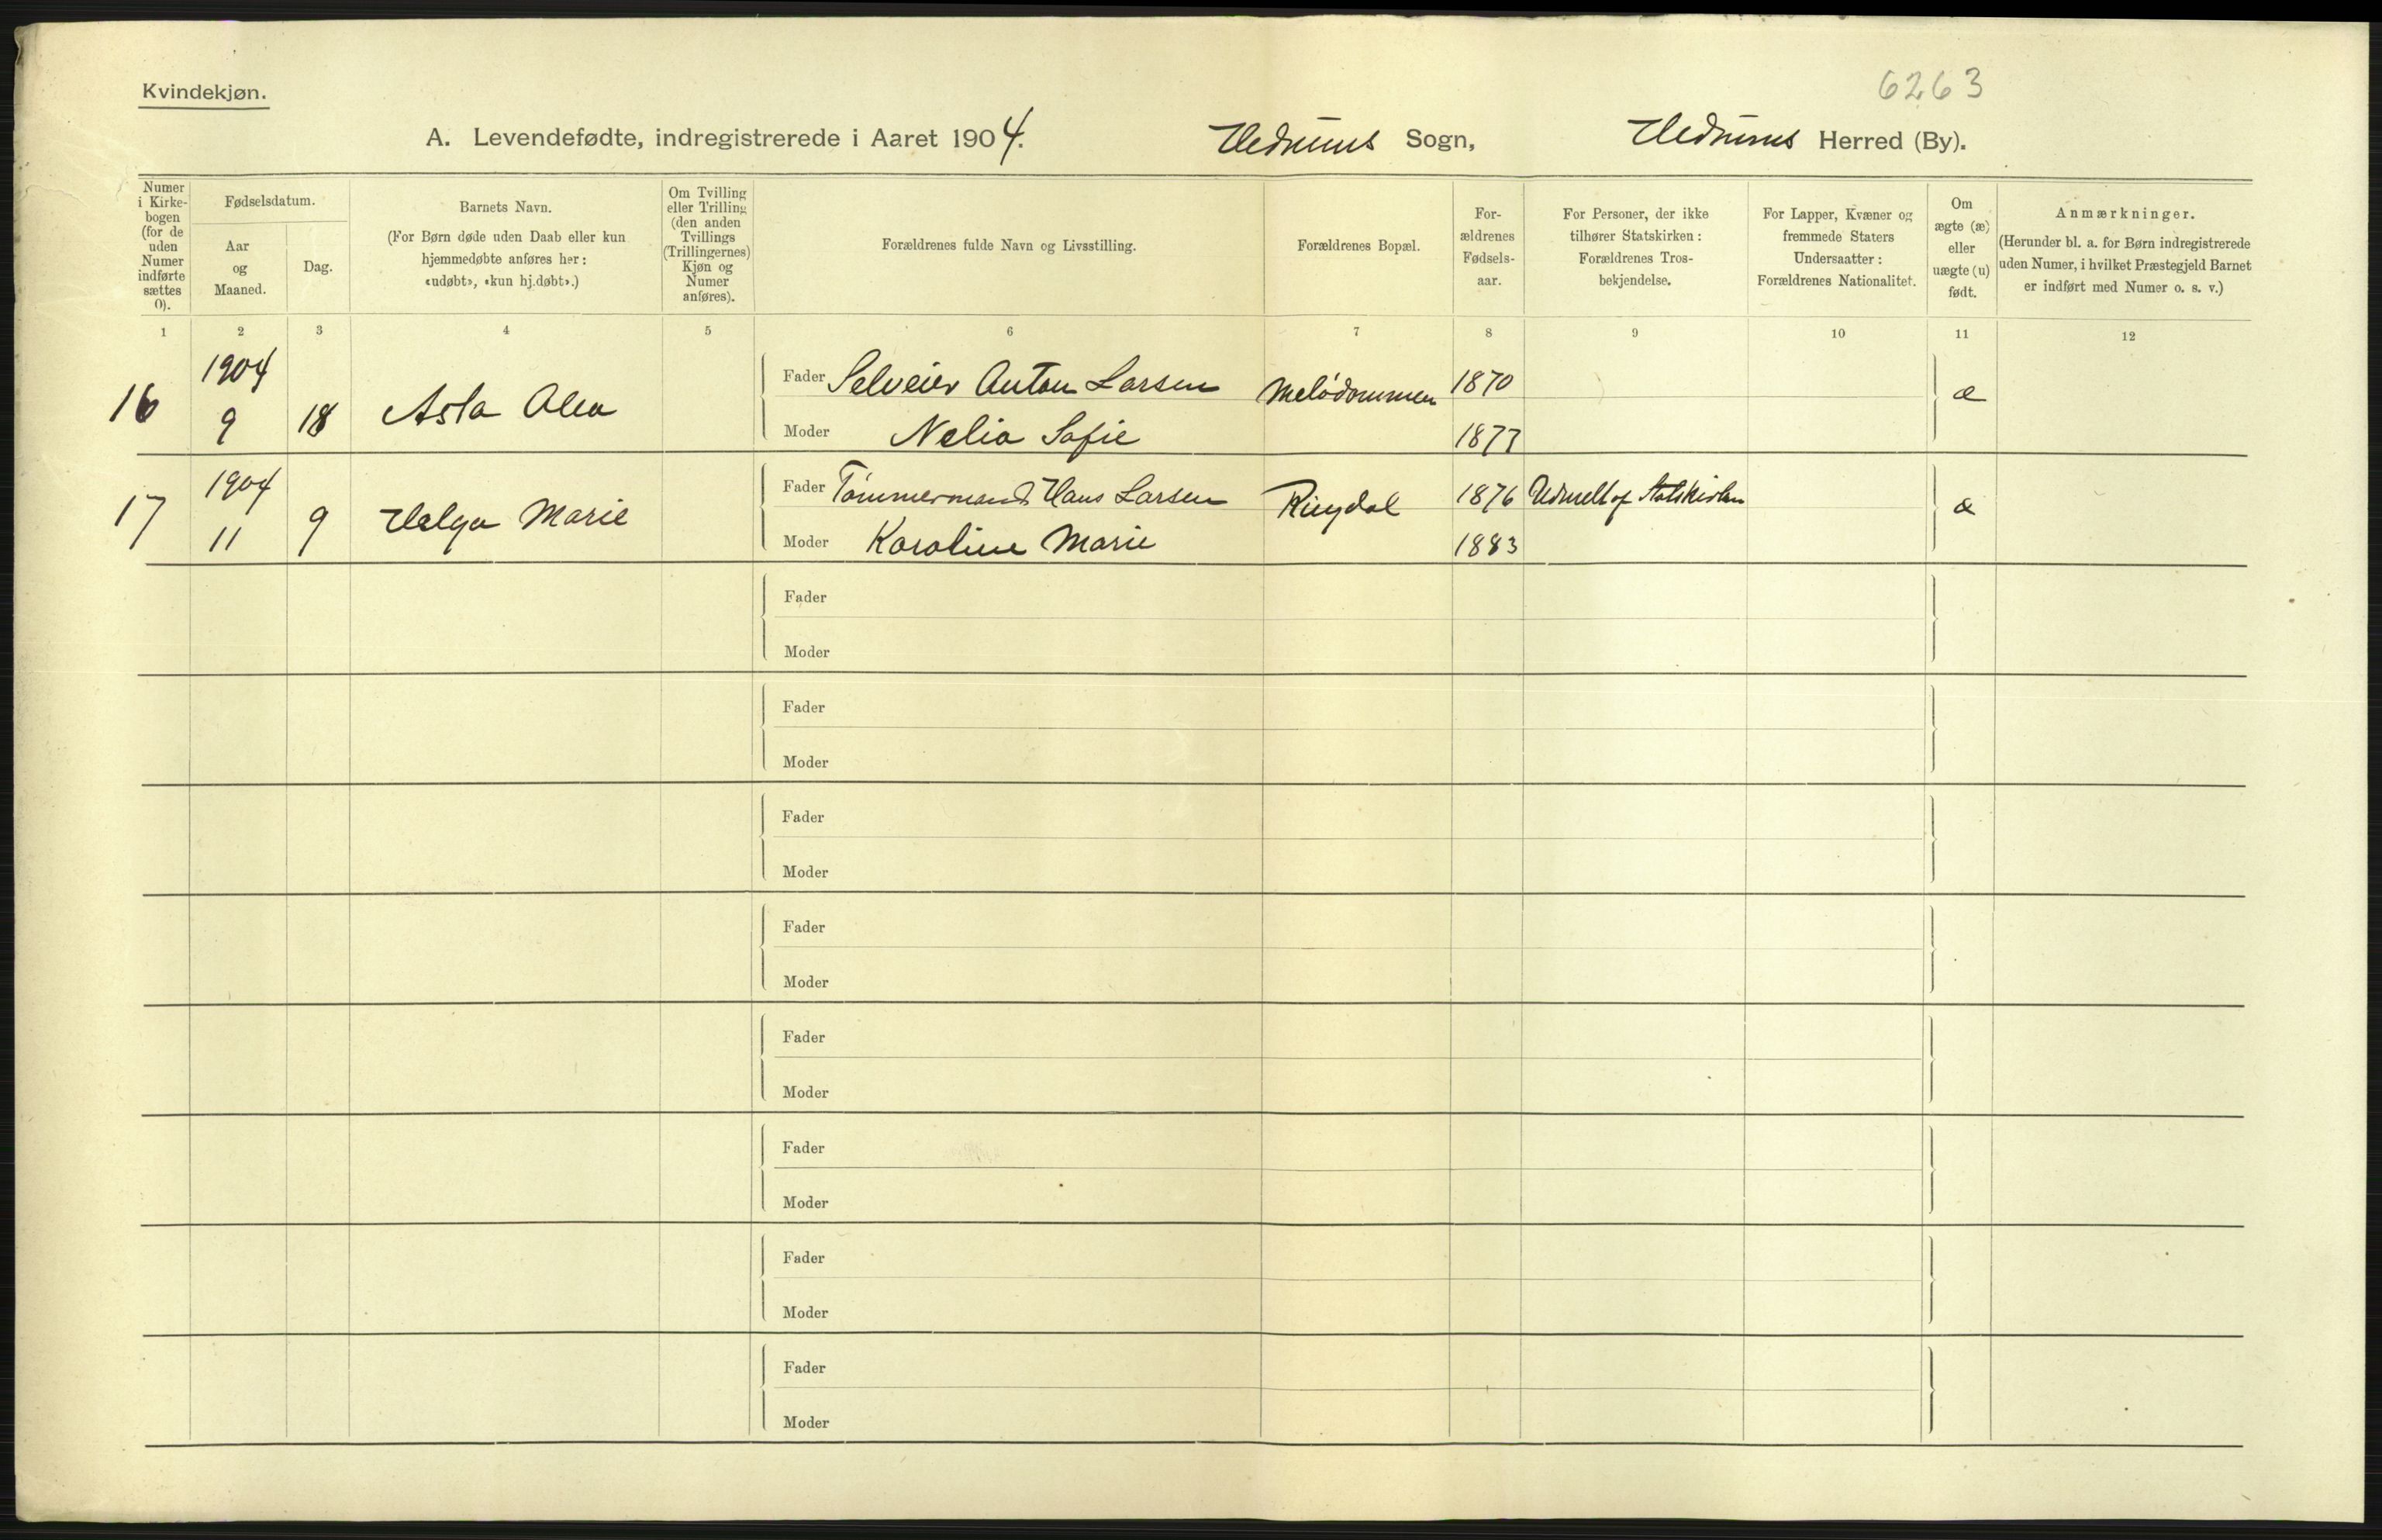 Kvindekjøn.
6263
A. Levendefødte, indregistrerede i Aaret 1904. Hedrums Sogn, Hedrums Herred (By).
Numer i Kirkebogen (for de uden Numer indførte sættes 0).
Fødselsdatum.
Aar og Maaned.
Dag.
Barnets Navn.
(For Børn døde uden Daab eller kun
hjemmedøbte anføres her:
«udøbt», «kun hj.døbt».)
Om Tvilling
eller Trilling
(den anden
Tvillings
(Trillingernes)
Kjøn og
Numer
anføres).
Forældrenes fulde Navn og Livsstilling.
Forældrenes Bopæl.
For-
ældrenes
Fødsels-
aar.
For Personer, der ikke
tilhører Statskirken:
Forældrenes Tros-
bekjendelse.
For Lapper, Kvæner og
fremmede Staters
Undersaatter:
Forældrenes Nationalitet.
Om
ægte (æ)
eller
uægte (u)
født.
Anmærkninger.
(Herunder bl. a. for Børn indregistrerede
uden Numer, i hvilket Præstegjeld Barnet
er indført med Numer o. s. v.)
1 2 3 4 5 6 7 8 9 10 11 12
16 1904 9 18 Asta Olea
Fader Selveier Anton Larsen Melödommen 1870 æ
Moder Nelia Sofie 1877
17 1904 11 9 Helga Marie
Fader Tömmermand Hans Larsen Ringdal 1876 Udmeldt af Statskirken æ
Moder Karoline Marie 1883
Fader
Moder
Fader
Moder
Fader
Moder
Fader
Moder
Fader
Moder
Fader
Moder
Fader
Moder
Fader
Moder